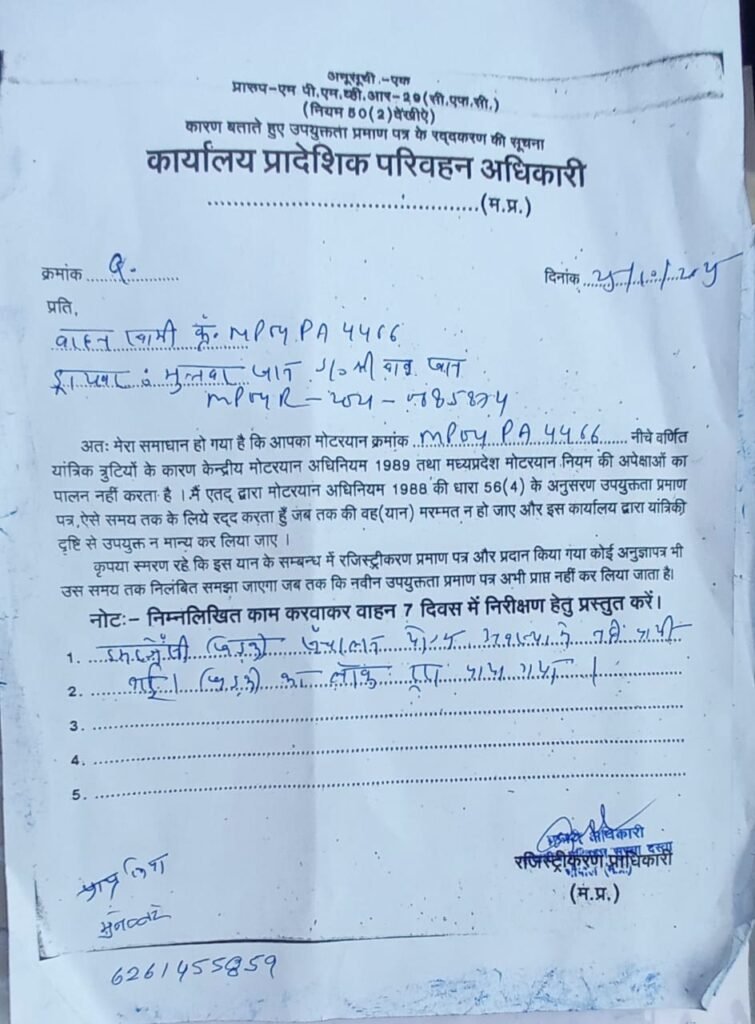 अनुसूची.-एक
प्रारुप-एम पी.एम.व्ही.आर-29(सी.एफ.सी.)
(नियम 50(2)देखीऐ)
कारण बताते हुए उपयुक्तता प्रमाण पत्र के रद्दकरण की सूचना
कार्यालय प्रादेशिक परिवहन अधिकारी
(म.प्र.)
क्रमांक
दिनांक 25/10/2025
प्रति,
वाहन स्वामी क्रं. MP04 PA 4466
ड्रायवर : खान S/o श्री खान
MP04R-2024-
अतः मेरा समाधान हो गया है कि आपका मोटरयान क्रमांक MP04 PA 4466 नीचे वर्णित
यांत्रिक त्रुटियों के कारण केन्द्रीय मोटरयान अधिनियम 1989 तथा मध्यप्रदेश मोटरयान नियम की अपेक्षाओं का
पालन नहीं करता है । मैं एतद् द्वारा मोटरयान अधिनियम 1988 की धारा 56(4) के अनुसरण उपयुक्तता प्रमाण
पत्र,ऐसे समय तक के लिये रद्द करता हुँ जब तक की वह(यान) मरम्मत न हो जाए और इस कार्यालय द्वारा यांत्रिकी
दृष्टि से उपयुक्त न मान्य कर लिया जाए ।
कृपया स्मरण रहे कि इस यान के सम्बन्ध में रजिस्ट्रीकरण प्रमाण पत्र और प्रदान किया गया कोई अनुज्ञापत्र भी
उस समय तक निलंबित समझा जाएगा जब तक कि नवीन उपयुक्तता प्रमाण पत्र अभी प्राप्त नहीं कर लिया जाता है।
नोटः- निम्नलिखित काम करवाकर वाहन 7 दिवस में निरीक्षण हेतु प्रस्तुत करें।
1. इमरजेंसी खिड़की संचालन योग्य अवस्था में नहीं पायी
2. गई। खिड़की का लॉक टूटा पाया गया ।
3.
4.
5.
अधिकारी
रजिस्ट्रीकरण प्राधिकारी
(म.प्र.)
प्राप्त किया
6261455859